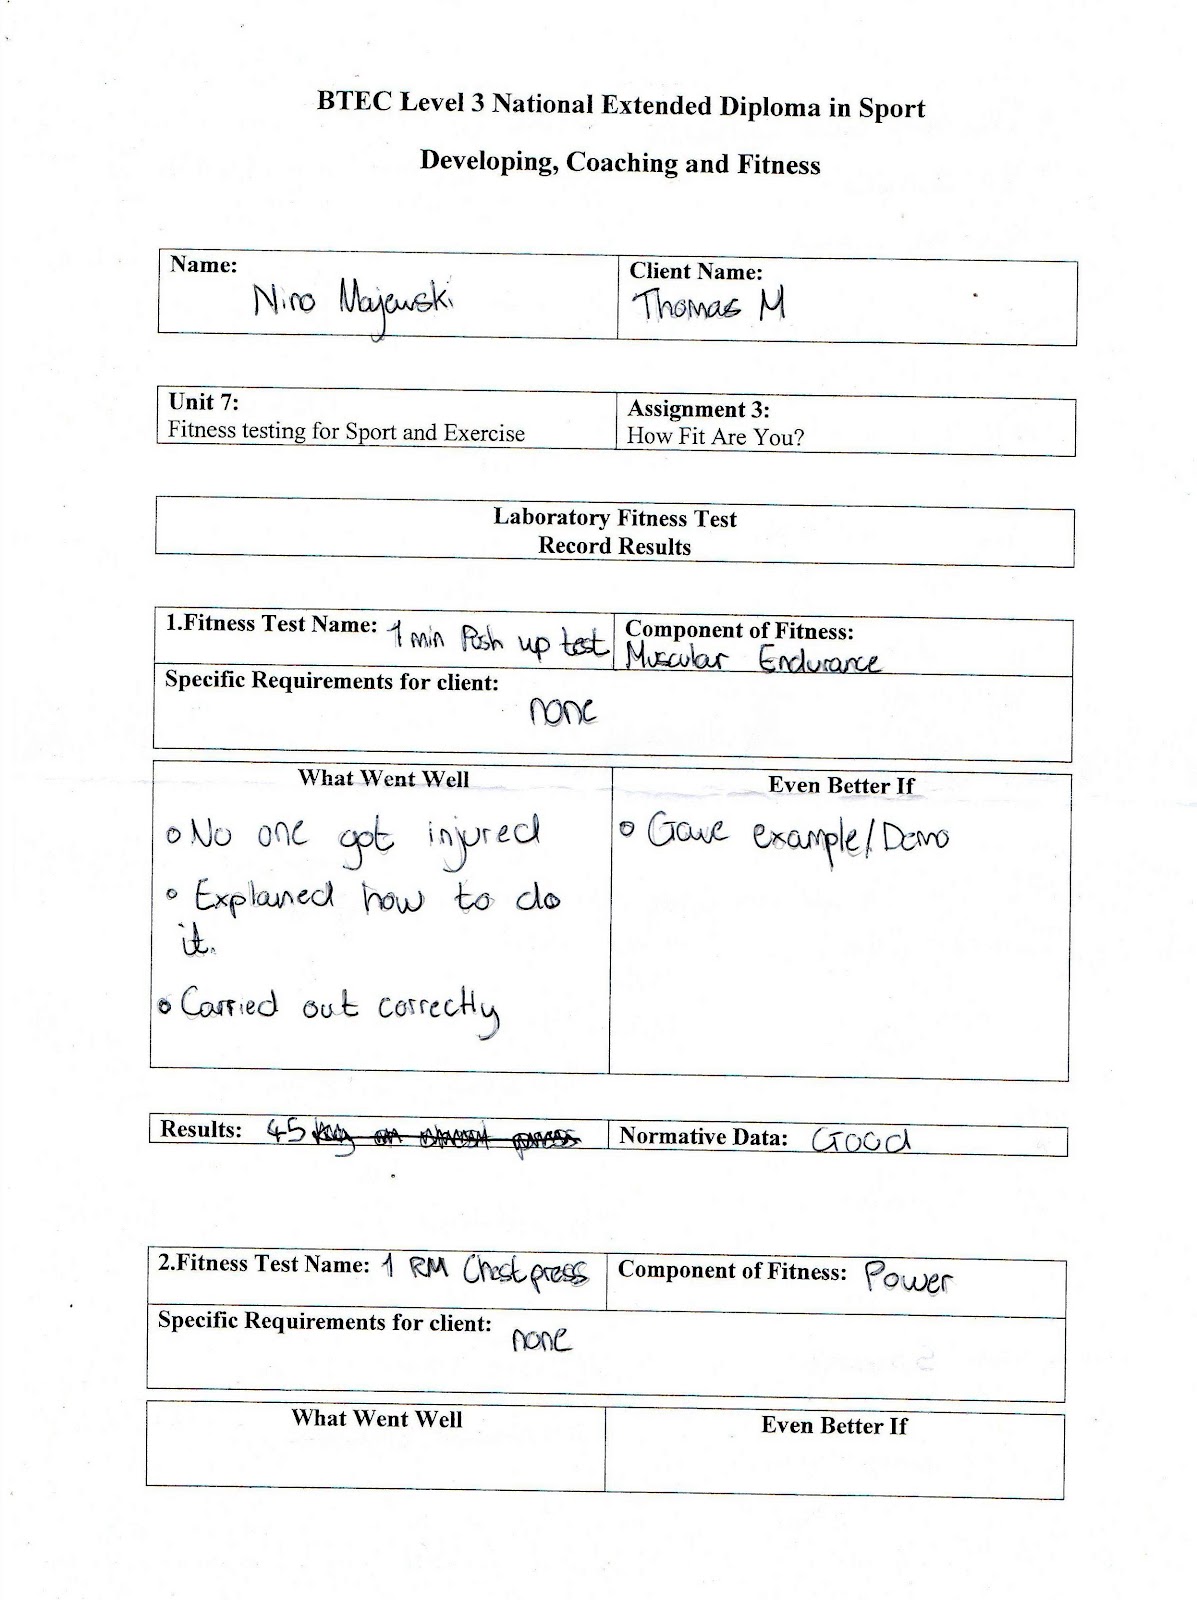 BTEC Level 3 National Extended Diploma in Sport
Developing, Coaching and Fitness
Name:
Nino Majewski
Client Name:
Thomas M
Unit 7:
Fitness testing for Sport and Exercise
Assignment 3:
How Fit Are You?
Laboratory Fitness Test
Record Results
1.Fitness Test Name: 1 min Push up test
Component of Fitness:
Muscular Endurance
Specific Requirements for client:
none
What Went Well
No one got injured
Explained how to do
it.
Carried out correctly
Even Better If
Gave example/Demo
Results: 45
Normative Data: Good
2.Fitness Test Name: 1 RM Chest press
Component of Fitness: Power
Specific Requirements for client:
none
What Went Well
Even Better If